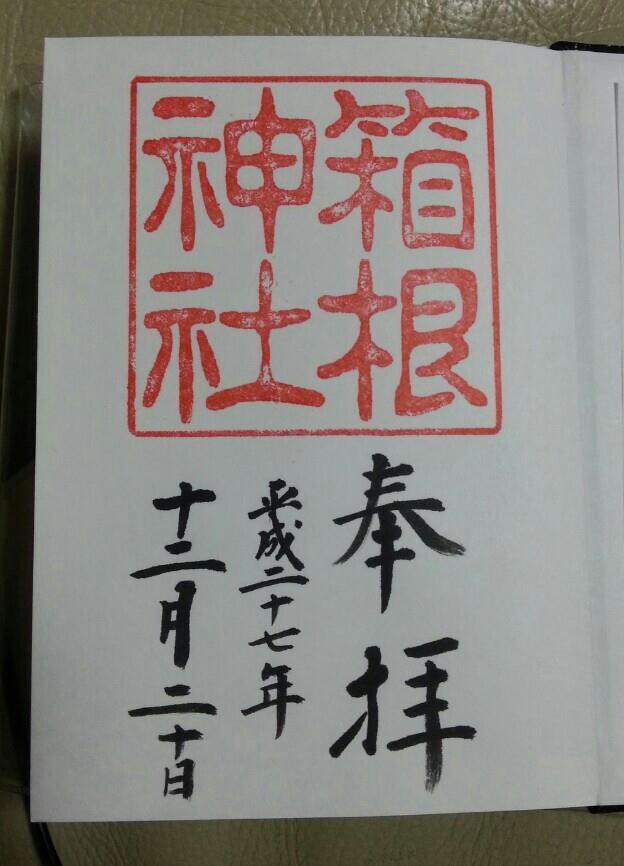 箱根
神社
奉拝
平成二十七年
十二月二十日